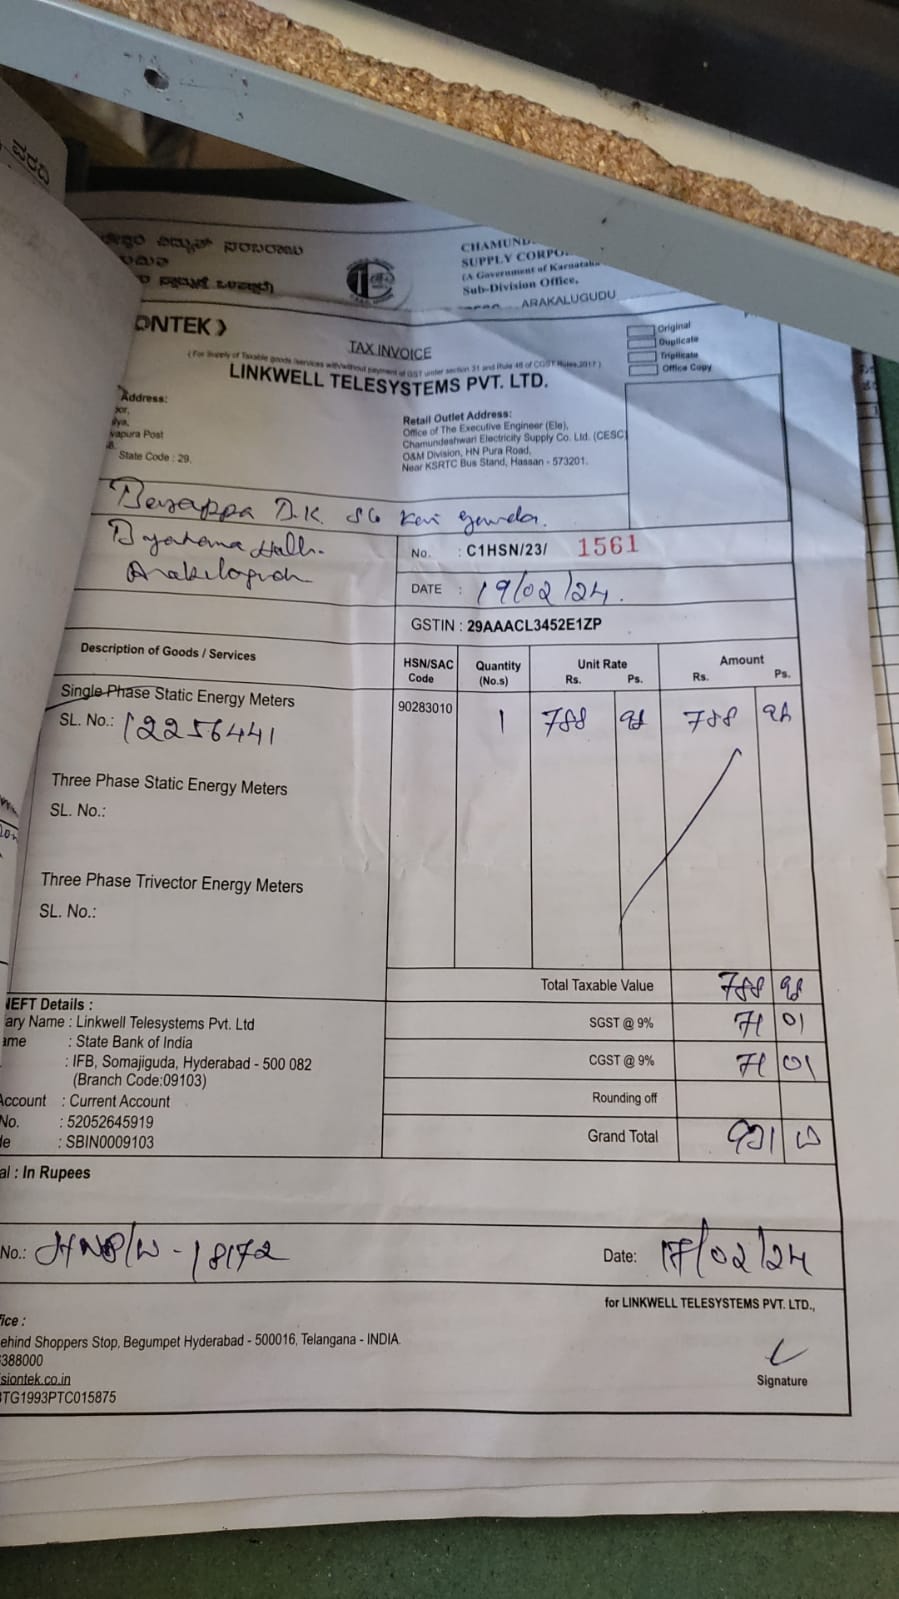 ವರದಿ
ವಿದ್ಯುತ್ ಸರಬರಾಜು
CHAMUND
SUPPLY CORPO
(A Government of Karnataka
Sub-Division Office,
ARAKALUGUDU
ONTEK
TAX INVOICE
(For Supply of Taxable goods /services with/without payment of GST under section 31 and Rule 46 of CGST Rules,2017)
LINKWELL TELESYSTEMS PVT. LTD.
Original
Duplicate
Triplicate
Office Copy
Address:
vapura Post
State Code : 29.
Retail Outlet Address:
Office of The Executive Engineer (Ele),
Chamundeshwari Electricity Supply Co. Ltd. (CESC)
O&M Division, HN Pura Road,
Near KSRTC Bus Stand, Hassan - 573201.
D.K.
No. : C1HSN/23/ 1561
DATE : 19/02/24.
GSTIN : 29AAACL3452E1ZP
Description of Goods / Services HSN/SAC Code Quantity (No.s) Unit Rate Rs. Ps. Amount Rs. Ps.
Single Phase Static Energy Meters 90283010 1 788 98 788 98
SL. No.: 12256441
Three Phase Static Energy Meters
SL. No.:
Three Phase Trivector Energy Meters
SL. No.:
Total Taxable Value 788 98
SGST @ 9% 71 01
CGST @ 9% 71 01
Rounding off
Grand Total 931
NEFT Details :
ary Name : Linkwell Telesystems Pvt. Ltd
ame : State Bank of India
: IFB, Somajiguda, Hyderabad - 500 082
(Branch Code:09103)
Account : Current Account
No. : 52052645919
de : SBIN0009103
al : In Rupees
No.: 18172 Date: 17/02/24
for LINKWELL TELESYSTEMS PVT. LTD.,
fice :
ehind Shoppers Stop, Begumpet Hyderabad - 500016, Telangana - INDIA.
388000
siontek.co.in
TG1993PTC015875
Signature